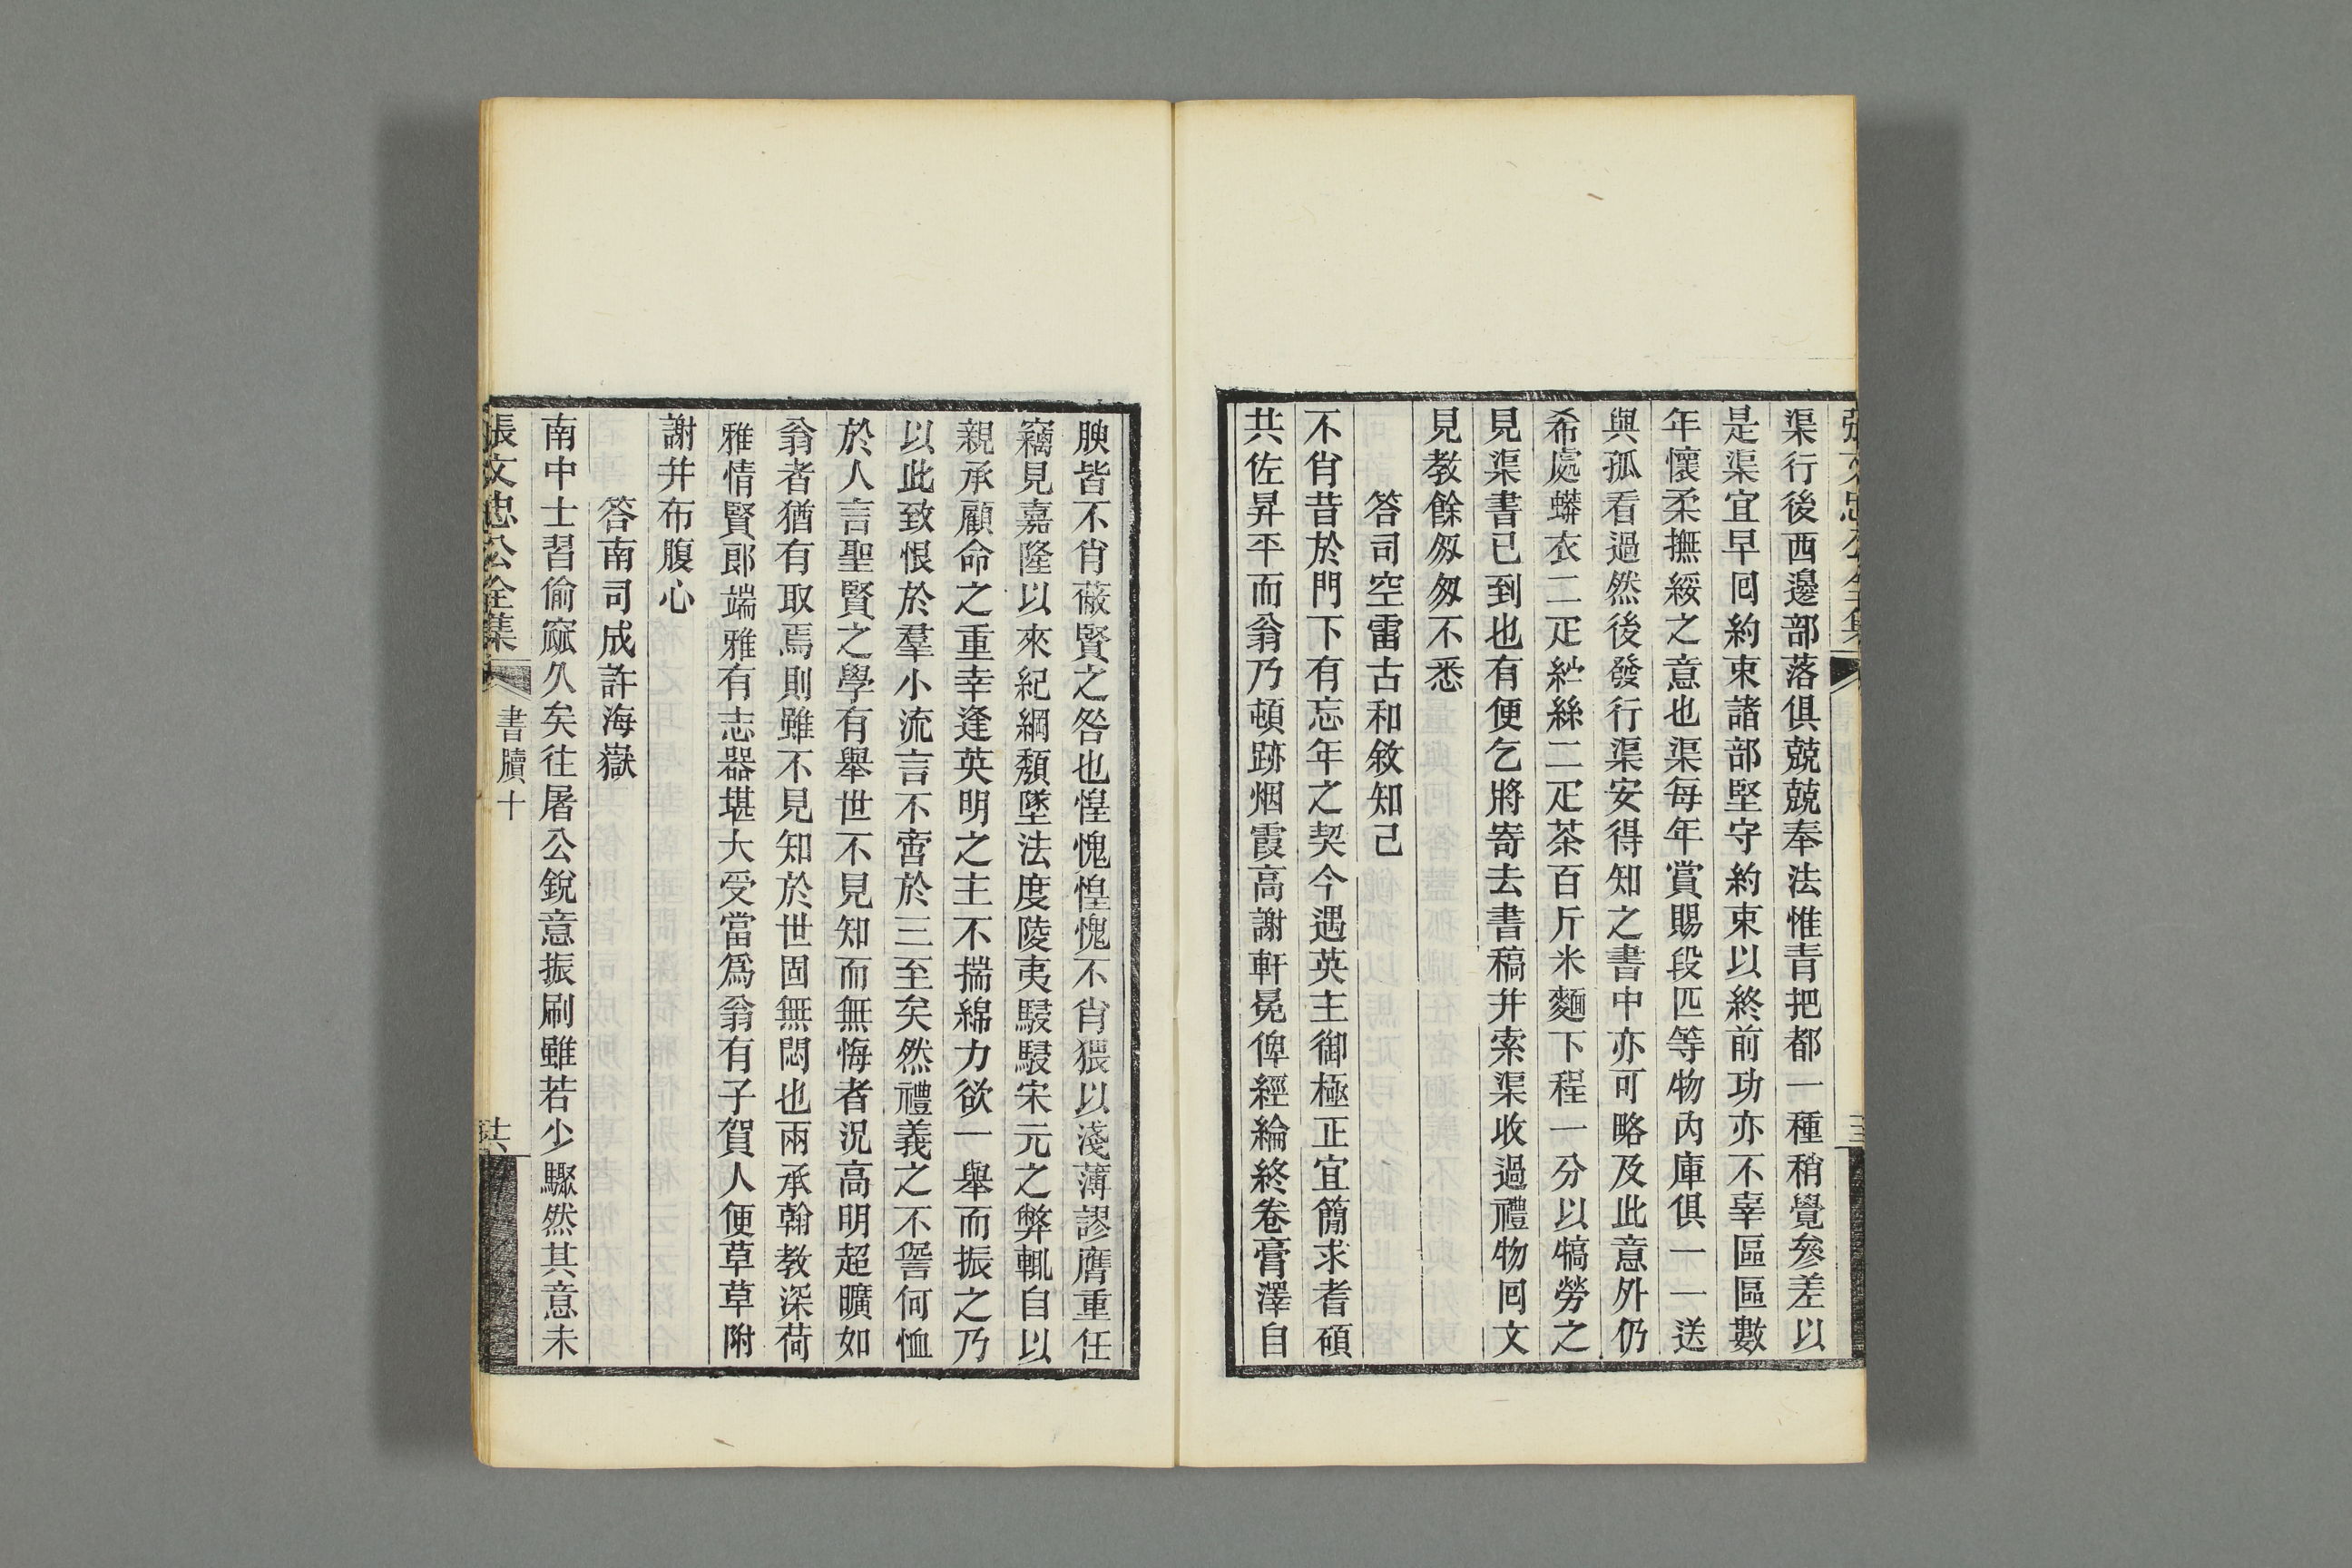 渠行後西邊部落俱兢兢奉法惟青把都一種稍覺參差以
是渠宜早囘約束諸部堅守約束以終前功亦不辜區區數
年懷柔撫綏之意也渠每年賞賜段匹等物內庫俱一一送
與孤看過然後發行渠安得知之書中亦可略及此意外仍
希處蟒衣二疋紵絲二疋茶百斤米麵下程一分以犒勞之
見渠書已到也有便乞將寄去書稿幷索渠收過禮物囘文
見教餘匆匆不悉
答司空雷古和敘知己
不肖昔於門下有忘年之契今遇英主御極正宜簡求耆碩
共佐昇平而翁乃頓跡烟霞高謝軒冕俾經綸終卷膏澤自
腴皆不肖蔽賢之咎也惶愧惶愧不肖猥以淺薄謬膺重任
竊見嘉隆以來紀綱頹墜法度陵夷駸駸宋元之弊輒自以
親承顧命之重幸逢英明之主不揣綿力欲一舉而振之乃
以此致恨於羣小流言不啻於三至矣然禮義之不諐何恤
於人言聖賢之學有舉世不見知而無悔者況高明超曠如
翁者猶有取焉則雖不見知於世固無悶也兩承翰教深荷
雅情賢郎端雅有志器堪大受當爲翁有子賀人便草草附
謝幷布腹心
答南司成許海嶽
南中士習偷窳久矣往屠公銳意振刷雖若少驟然其意未
張文忠公全集
書牘十
共